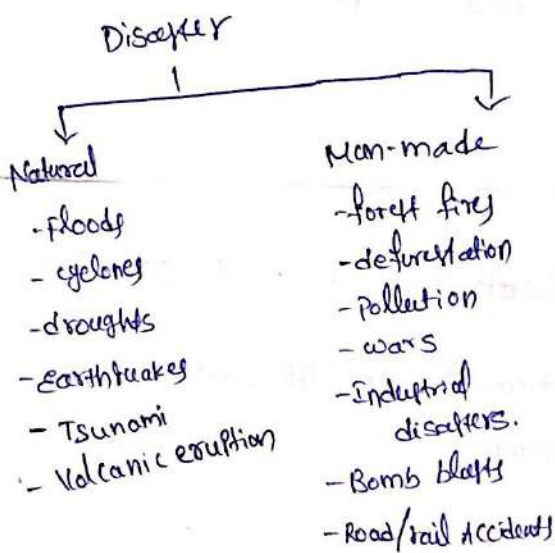 Disaster
Natural
- Floods
- cyclones
- droughts
- Earthquakes
- Tsunami
- Volcanic eruption
Man-made
- forest fires
- deforestation
- Pollution
- wars
- Industrial
disasters.
- Bomb blasts
- Road/rail Accidents